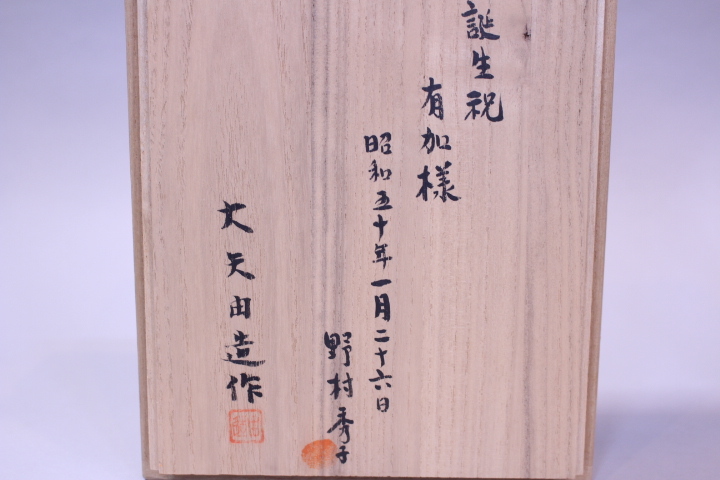 誕生祝
有加様
昭和五十年一月二十六日
野村秀子
大矢由造作